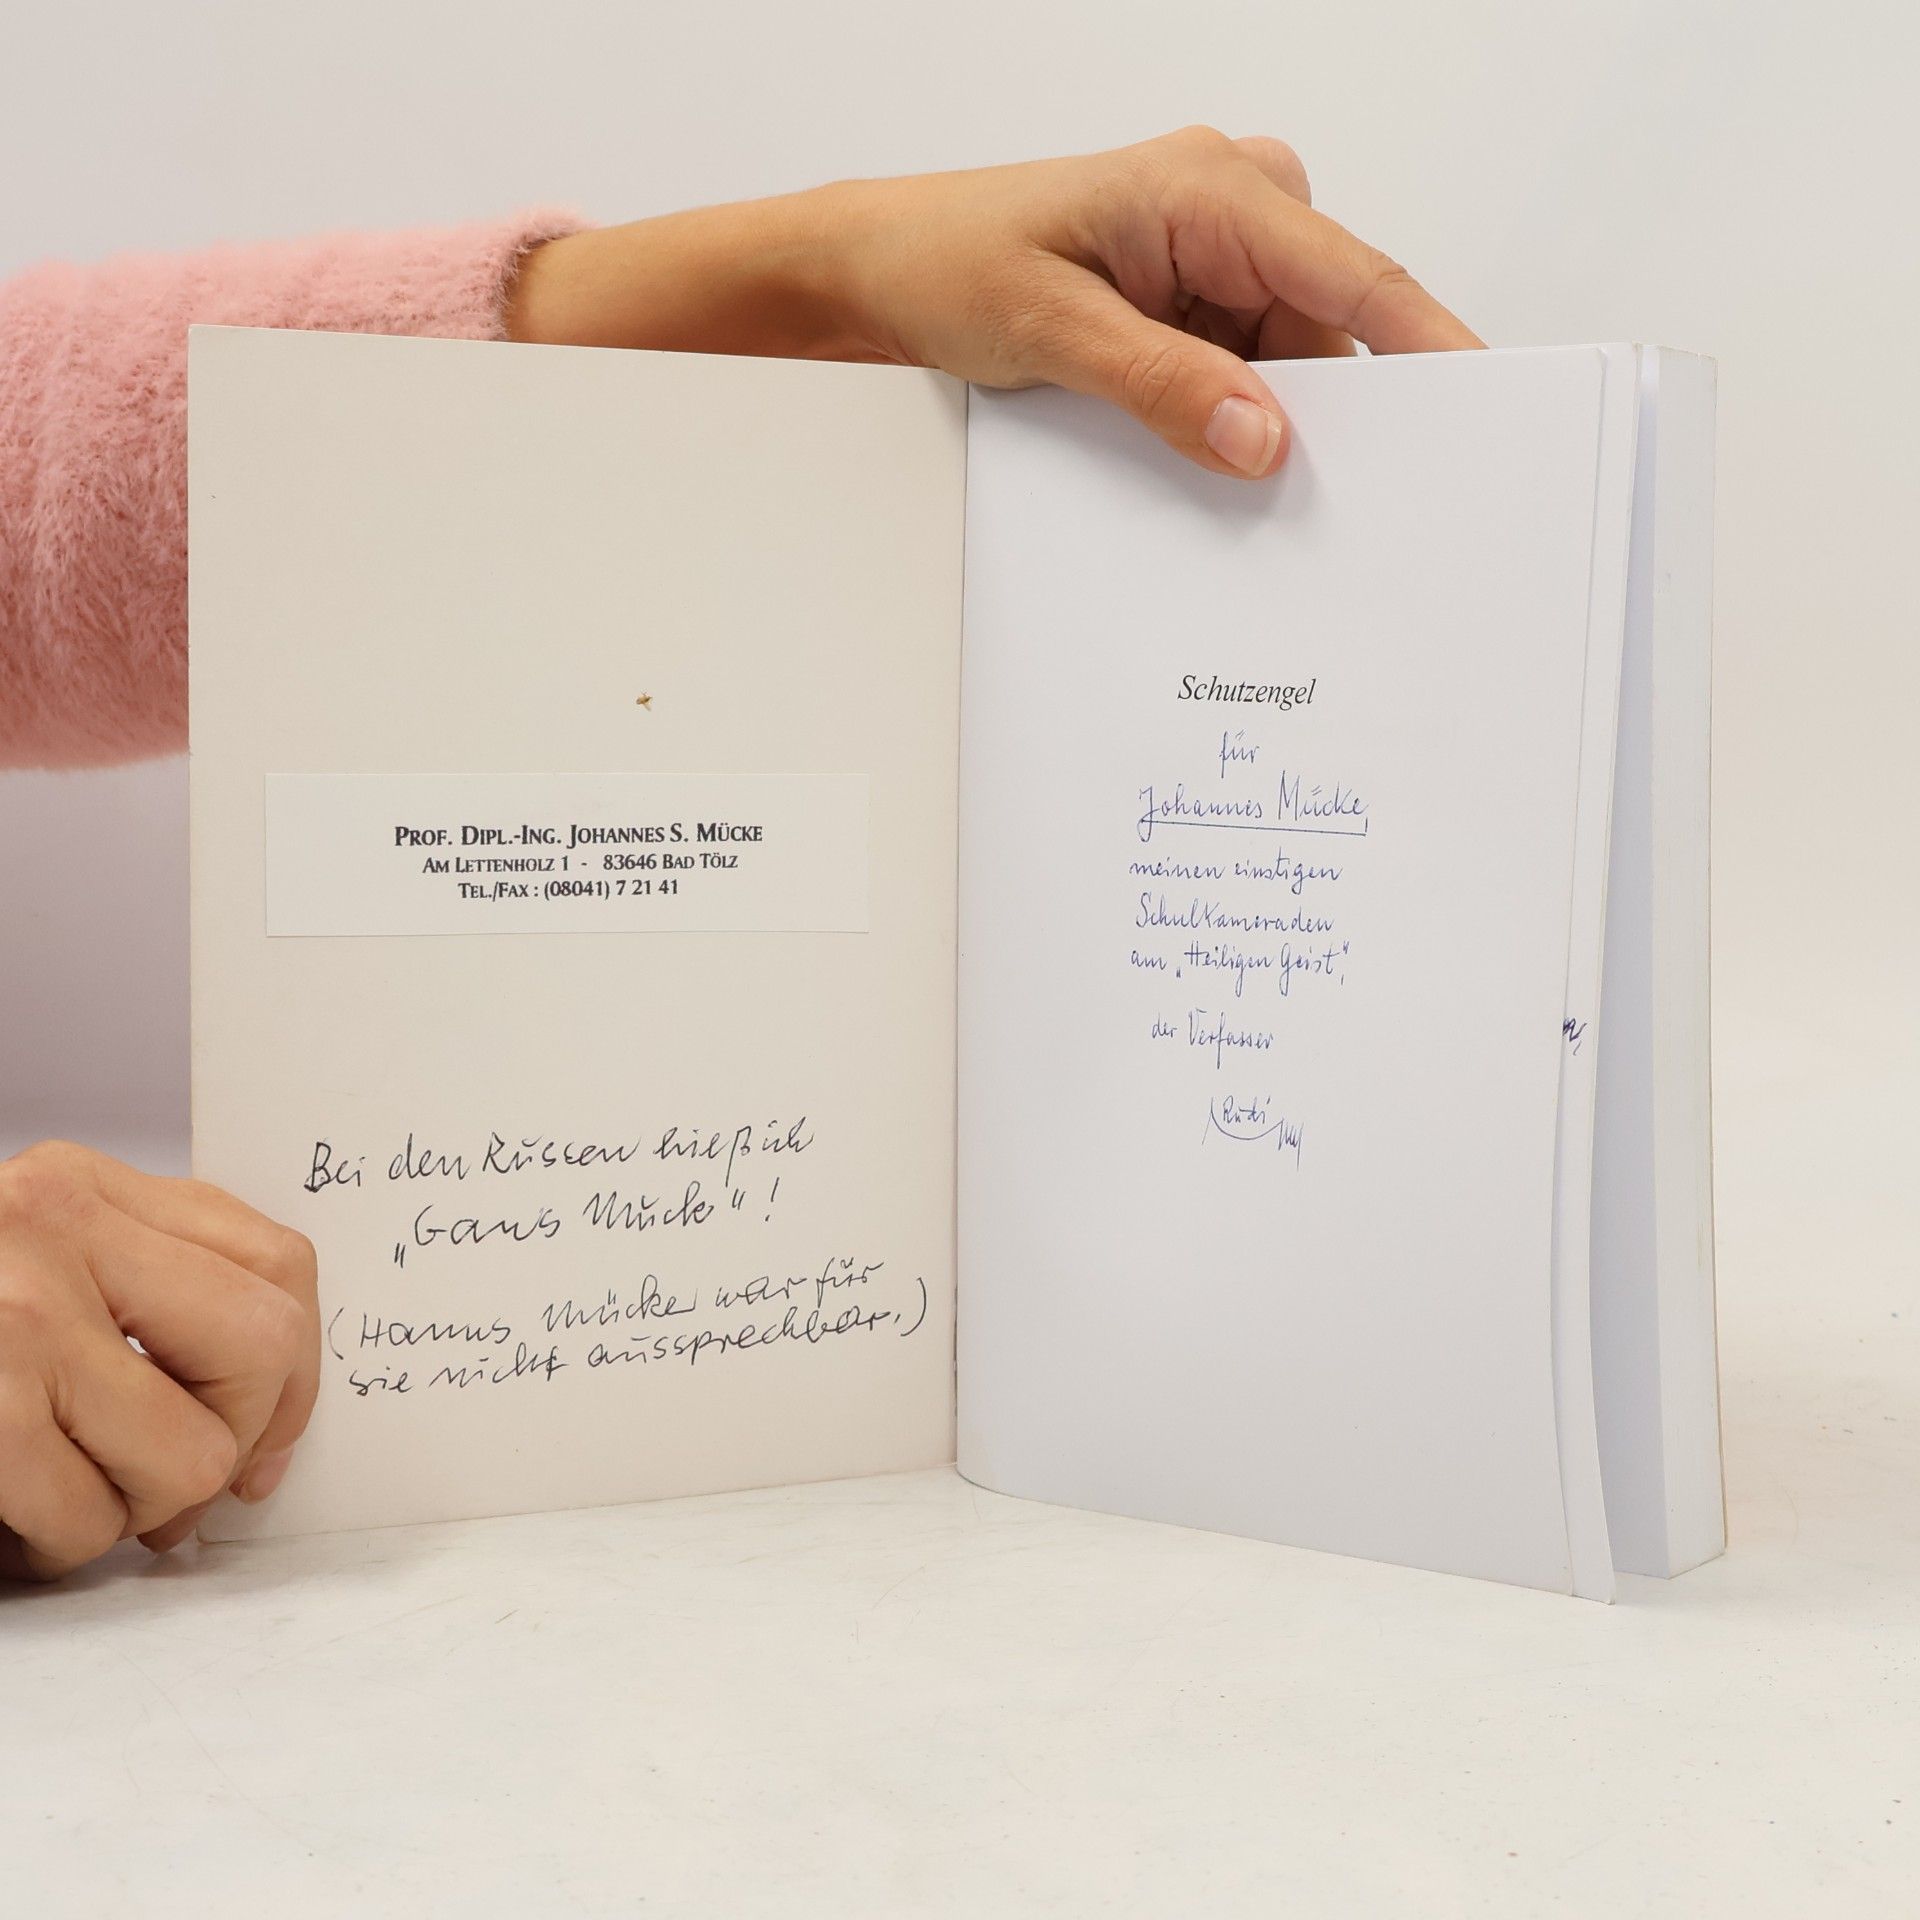 PROF. DIPL.-ING. JOHANNES S. MÜCKE
AM LETTENHOLZ 1 - 83646 BAD TÖLZ
TEL./FAX : (08041) 7 21 41
Bei den Russen hieß ich
„Gans Muck"!
(Hanns Mücke war für
sie nicht aussprechbar.)
Schutzengel
für
Johannes Mücke,
meinen einstigen
Schulkameraden
am „Heiligen Geist",
der Verfasser
Rudi